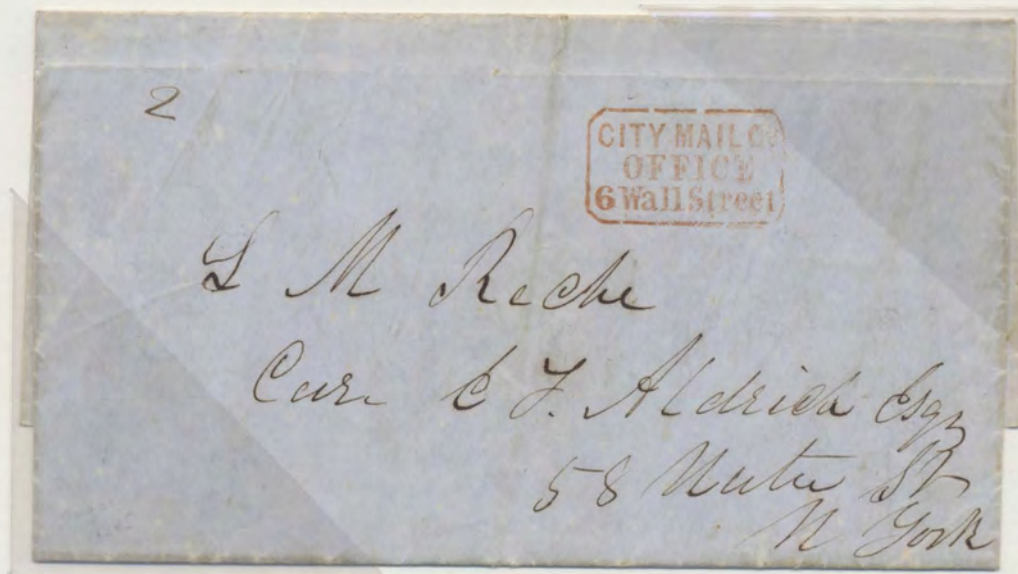 2
CITY MAIL Co
OFFICE
6 Wall Street
L M Reche
Care C F. Aldrich Esqr
58 Water St
N York